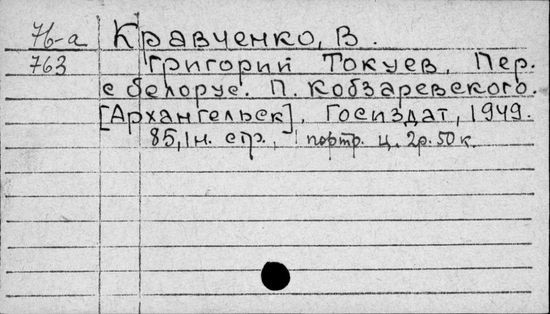 76-а Кравченко, В.
763 Григорий Токуев. Пер.
с белорус. П. Кобзаревского.
[Архангельск], Госиздат, 1949.
85,1н. стр., 1 портр. ц. 2р. 50 к.